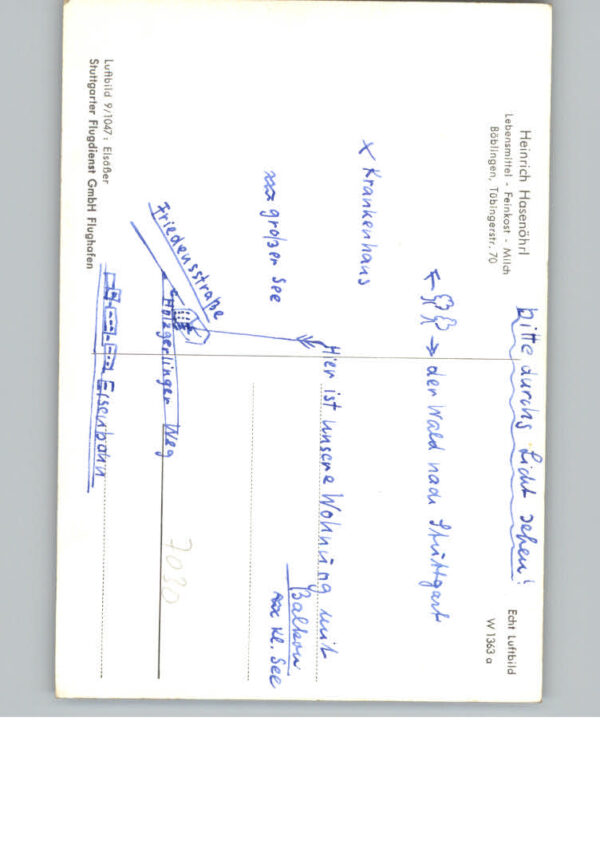 Heinrich Hasenöhrl
Lebensmittel - Feinkost - Milch
Böblingen, Tübingerstr. 70
bitte durchs Licht sehen!
Echt Luftbild
W 1363 a
der Wald nach Stuttgart
x Krankenhaus
Hier ist unsere Wohnung mit
Balkon
großer See
kl. See
Friedensstraße
Holzgerlinger Weg
7030
Eisenbahn
Luftbild 9/1047: Elsäßer
Stuttgarter Flugdienst GmbH Flughafen